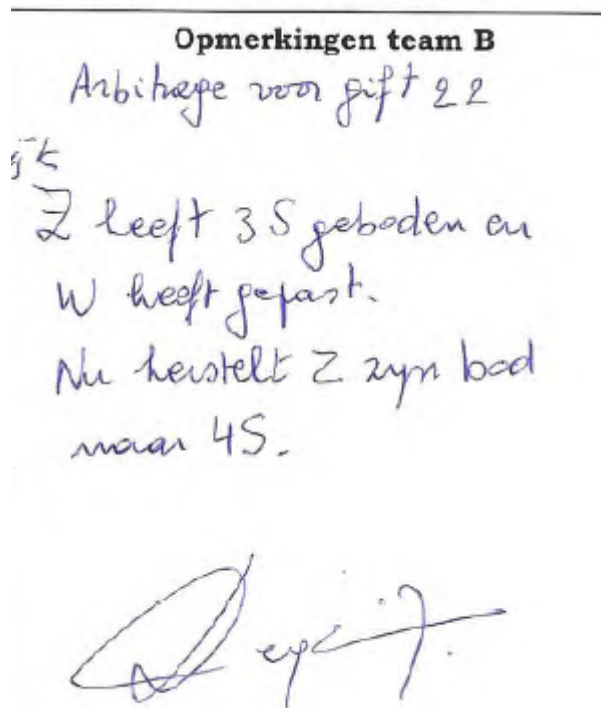 Opmerkingen team B
Arbitrage voor gift 22
Z heeft 3S geboden en
W heeft gepast.
Nu herstelt Z zyn bod
naar 4S.